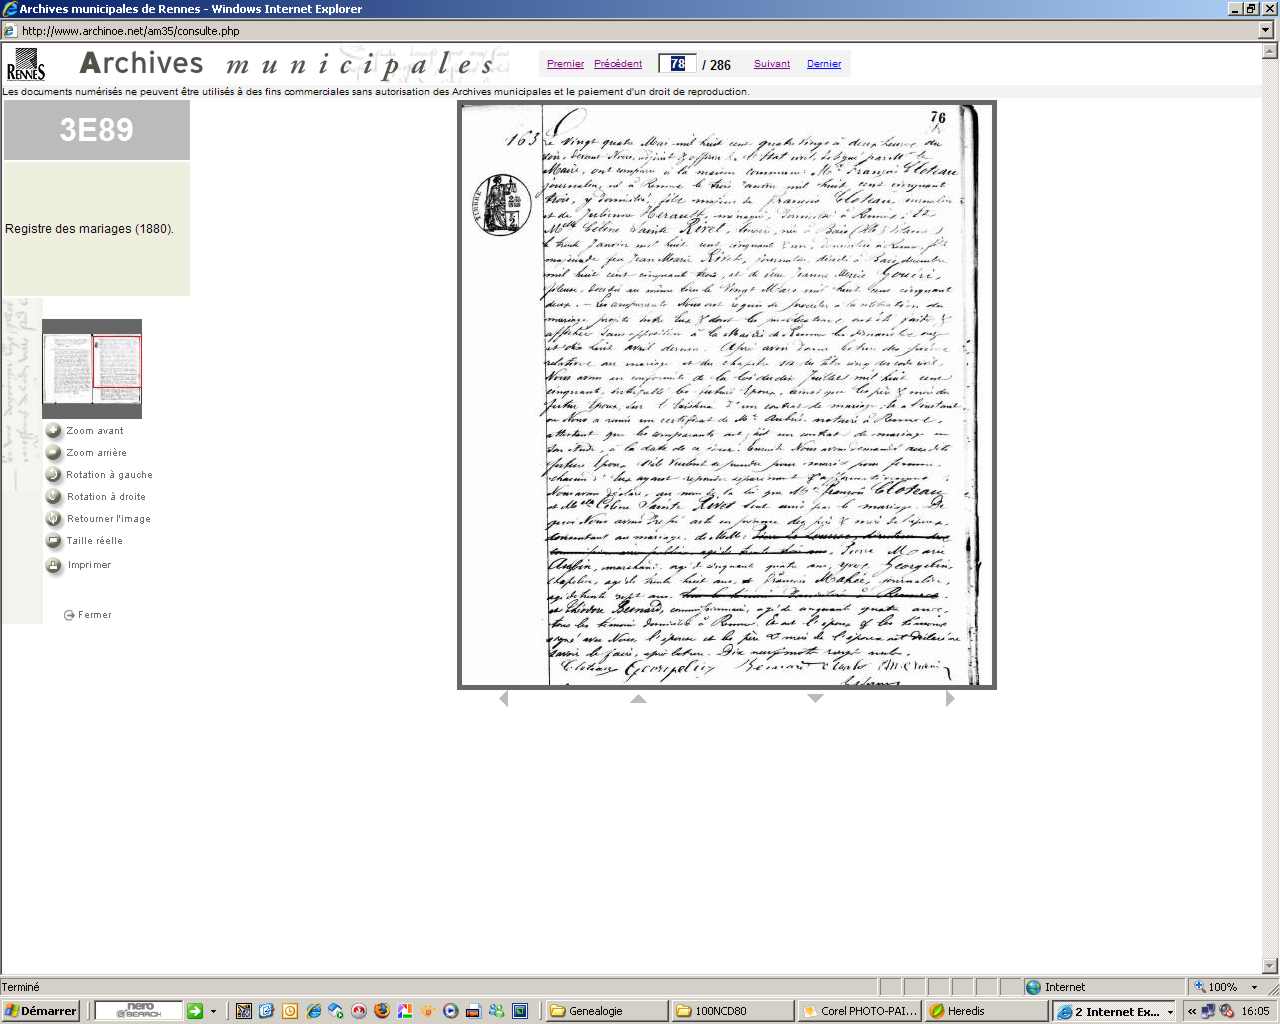 Archives municipales de Rennes - Windows Internet Explorer
http://www.archinoe.net/am35/consulte.php
RENNES
Archives municipales
Premier Précèdent 78 / 286 Suivant Dernier
Les documents numérisés ne peuvent être utilisés à des fins commerciales sans autorisation des Archives municipales et le paiement d'un droit de reproduction.
3E89
Registre des mariages (1880).
Zoom avant
Zoom arrière
Rotation à gauche
Rotation à droite
Retourner l'image
Taille réelle
Imprimer
Fermer
76
163 Le vingt quatre Mai mil huit cent quatre vingt à deux heures du
soir, devant Nous, adjoint & officier de l'Etat civil, délégué par Mr le
Maire, ont comparu à la maison commune: Mr François Cloteau
journalier, né à Rennes le trois janvier mil huit cent cinquant
trois, y domicilié, fils majeur de François Cloteau, journalier
et de Julienne Herault, ménagère, domiciliés à Rennes;
Melle Céline Sainte Rivet, née à Bais
le trente Janvier mil huit cent cinquant un, domiciliée à Rennes, fille
majeure de feu Jean Marie Rivet, journalier, décédé à Bais,
mil huit cent cinquant trois, et de feue Jeanne Marie
fileuse, décédée au même lieu le vingt Mars mil huit cent cinquant
deux. - Les comparants Nous ont requis de procéder à la célébration du
mariage projeté entre eux & dont les publications ont été faites &
affichées sans opposition à la Mairie de Rennes les dimanches onze
et dix huit avril dernier. Après avoir donné lecture des pièces
relatives au mariage et du chapitre six du titre cinq du code civil,
Nous avons en conformité de la loi du dix Juillet mil huit cent
cinquant, interpellé les futurs époux, ainsi que les père & mère du
futur époux, sur l'existence d'un contrat de mariage; à l'instant
on Nous a remis un certificat de Me Aubrée notaire à Rennes,
attestant que les comparants ont fait un contrat de mariage en
son étude, à la date de ce jour. Ensuite Nous avons demandé aux dits
futurs époux s'ils veulent se prendre pour mari et pour femme.
chacun d'eux ayant répondu séparément & affirmativement
Nous avons déclaré, au nom de la loi que Mr François Cloteau
et Melle Céline Sainte Rivet sont unis par le mariage. De
quoi Nous avons dressé acte en présence des père & mère de l'époux,
consentant au mariage, de Pierre Marie
Aubin, marchand, agé de cinquant quatre ans, Yves Georgelin,
chapelier, agé de trente huit ans, François Mahée, journalier,
agé de trente sept ans
et Théodore Bernard, commissionnaire, agé de cinquant quatre ans,
tous les témoins domiciliés à Rennes. Et ont l'époux & les témoins
signé avec Nous, l'épouse et les père & mère de l'époux ont déclaré ne
savoir le faire, après lecture. Dix neuf mots rayés nuls.
Cloteau Georgelin Bernard
Terminé
Internet
100%
Démarrer
nero
SEARCH
Genealogie
100NCD80
Corel PHOTO-PAI...
Heredis
2 Internet Ex...
16:05